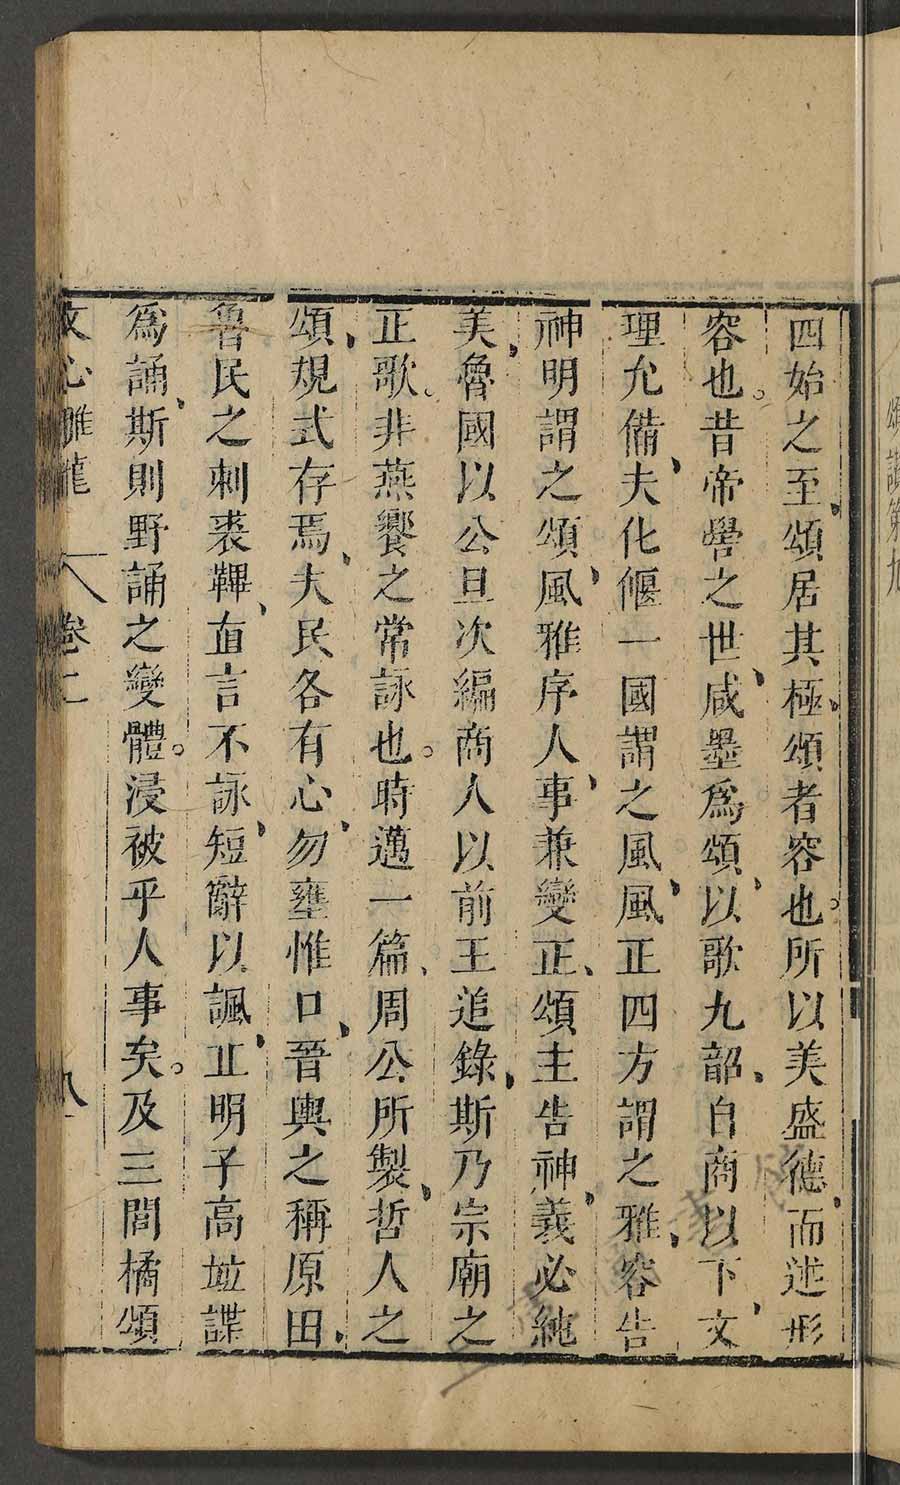 頌讚第九
四始之至、頌居其極、頌者容也。所以美盛德、而述形
容也。昔帝嚳之世、咸墨爲頌、以歌九韶、自商以下、文
理允備、夫化偃一國謂之風、風正四方謂之雅、容告
神明謂之頌、風雅序人事、兼變正、頌主告神、義必純
美、魯國以公旦次編商人以前王追錄、斯乃宗廟之
正歌。非燕饗之常詠也。時邁一篇、周公所製、哲人之
頌、規式存焉、夫民各有心、勿壅惟口、晉輿之稱原田、
魯民之刺裘鞸、直言不詠、短辭以諷、丘明子高竝諜
爲誦、斯則野誦之變體。浸被乎人事矣。及三閭橘頌
文心雕龍 卷二 八